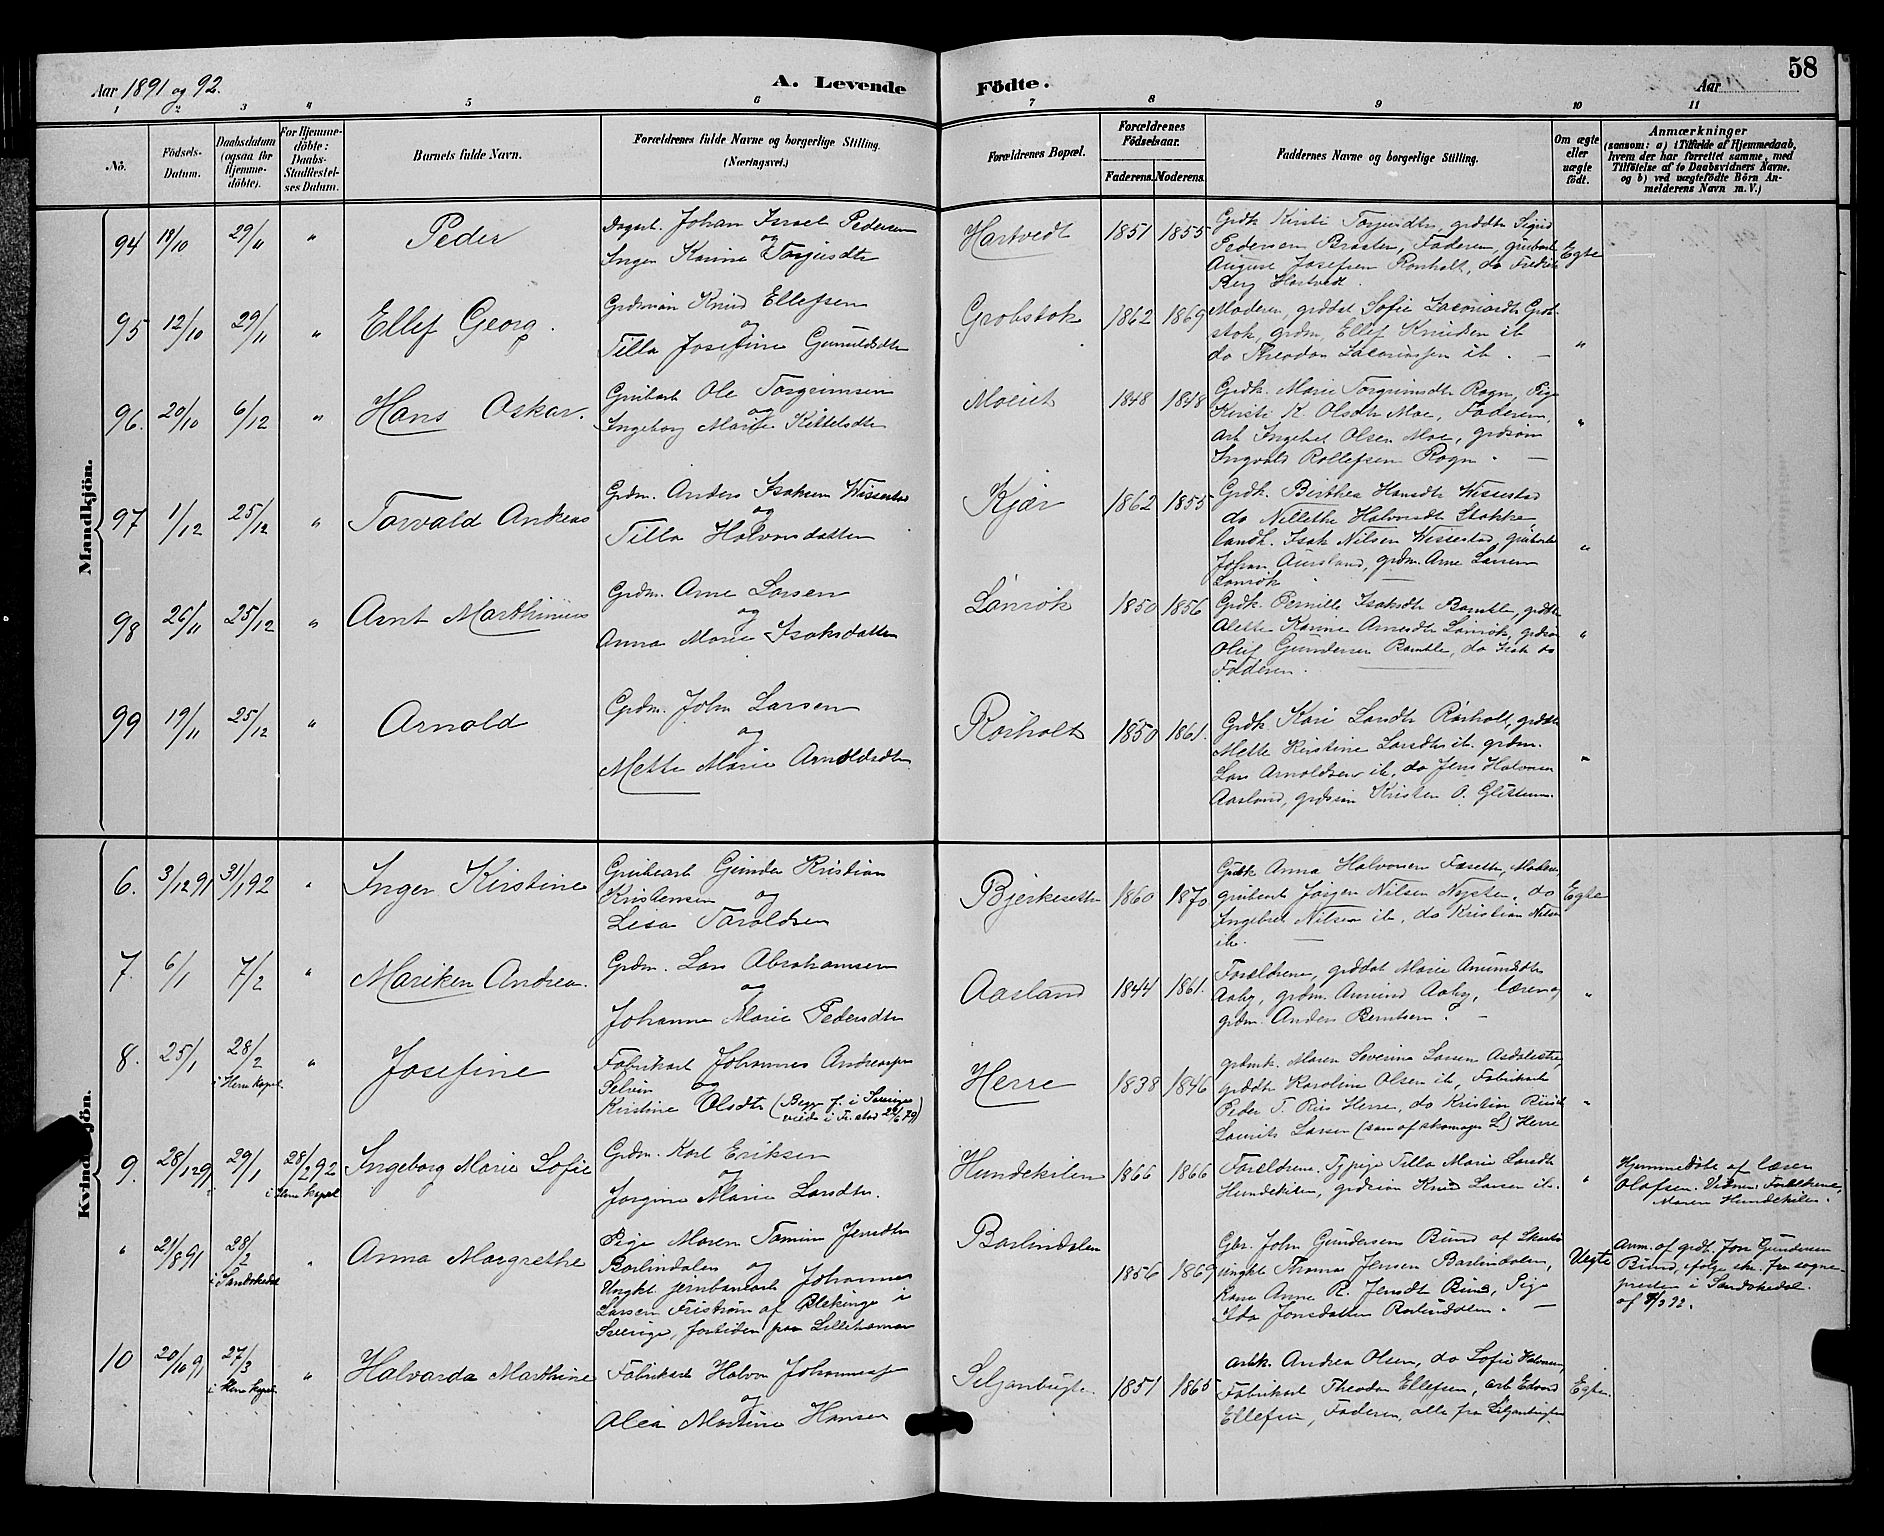 Aar 1891 og 92.
A. Levende
Födte.
Aar
58
1 2 3 4 5 6 7 8 9 10 11
No.
Födsels-Datum.
Daabsdatum (ogsaa for Hjemme-döbte).
For Hjemme-döbte: Daabs-Stadfæstel-ses Datum.
Barnets fulde Navn.
Forældrenes fulde Navne og borgerlige Stilling. (Næringsvei.)
Forældrenes Bopæl.
Forældrenes Födselsaar.
Faderens. Moderens.
Faddernes Navne og borgerlige Stilling.
Om ægte eller uægte födt.
Anmærkninger
(saasom: a) i Tilfælde af Hjemmedaab, hvem der har forrettet samme, med Tilföielse af to Daabsvidners Navne, og b) ved uægtefödte Börn Anmelderens Navn m. V.)
Mandkjön.
94 18/10 29/11 " Peder
Dagarb. Johan Israel Pedersen
og
Inger Karine Torjusdtr
Hartvedt 1851 1855
Grdk. Kirsti Torjusdtr, grddtr Sigrid
Pedersen Braaten, Faderen, grubarb.
August Josefsen Rønholt, do Fredrik
Berg Hartvedt.
Egte
95 12/10 29/11 " Ellef Georg.
Grdman Knud Ellefsen
og
Tilla Josefine Gunuldsdtr
Grobstok 1862 1869
Moderen, grddat Sofie Zacariasdtr Grob-
stok, grdm. Ellef Knudsen ib
do Theodor Zacariassen ib. —
"
96. 20/10 6/12 " Hans Oskar.
Grubarb Ole Torgrimsen
og
Ingeborg Marie Kittelsdtr
Moeiet 1848 1848
Grdk. Marie Torgrimsdtr Rogn, Pige
Kirsti K. Olsdtr Moe, Faderen,
arb Ingebret Olsen Moe, grdsøn
Ingvald Rollefsen Rogn. —
"
97 1/12 25/12 " Torvald Andreas
Grdm. Anders Isaksen Wissestad
og
Tilla Halvorsdatter
Kjær 1862 1855
Grdk. Birthea Hansdtr Wissestad
do Nillethe Halvorsdtr Stokke,
landh. Isak Nilsen Wissestad, grubarb
Johan Aursland, grdm. Arne Larsen
Lønrøk —
"
98 26/11 25/12 " Arnt Marthinius
Grdm. Arne Larsen
og
Anna Marie Isaksdatter
Lønrøk 1850 1856
Grdk. Pernille Isaksdtr Bamble, grddtr
Alette Karine Arnesdtr Lønrøk, grdsøn
Oluf Gundersen Bamble, do Isak do
Faderen.
"
99 19/11 25/12 " Arnold
Grdm. John Larsen
og
Mette Marie Arnoldsdtr
Rørholt 1850 1861.
Grdk. Kari Larsdtr Rørholt, grddtr
Mette Kirstine Larsdtr ib. grdm.
Lars Arnoldsen ib, do Jens Halvorsen
Aasland, grdsøn Kristen O. Glittum.
"
Kvindekjön.
6. 3/12 91 31/1 92 " Inger Kirstine
Grubearb Gunder Kristian
Kristensen og
Lisa Taraldsen
Bjerkesetten 1860 1870
Grdk Anna Halvorsen Fosetter, Moderen
grubearb Jørgen Nilsen Nysten, do
Ingebret Nilsen ib, do Kristian Nilsen
ib. —
Egte
7. 6/1 7/2 " Mariken Andrea.
Grdm. Lars Abrahamsen
og
Johanne Marie Pedersdtr
Aasland 1844 1861.
Forældrene, grddat Marie Amundsdtr
Aaby, grdm. Amund Aaby, lærer og
grdm. Anders Berntsen. —
"
8. 25/1 28/2 i Herre Kapel. " Josefine
Fabrikarb Johannes Andreassen
og
Kirstine Olsdtr (Begge f. i Sverige viede i Fr.stad 29/6 79)
Herre 1838 1846
grdmk. Maren Severine Larsen Asdalestra,
grddtr Karoline Olsen ib, Fabrikarb
Peder T. Riis Herre, do Kristian Riis ib
Laurits Larsen (søn af skomager L) Herre
"
9. 28/12 91 29/1 28/2 92 i Herre Kapel Ingeborg Marie Sofie
Grdm. Karl Eriksen
og
Jorgine Marie Larsdtr.
Hundekilen 1866 1866
Forældrene. Tjpige Tilla Marie Larsdtr
Hundekilen, grdsøn Knud Larsen ib.
"
Hjemmedøbt af lærer
Olafsen. Vidner: Forældrene,
Maren Hundekilen.
" 21/8 91 28/2 i Sandøkedal " Anna Margrethe
Pige Maren Tomine Jensdtr
Barlindalen og
Ungk. jernbanearb Johannes
Larsen Fristrøm af Blekinge i
Sverige, fortiden paa Lillehamar
Barlindalen 1856 1869
Gbr. John Gundersens Bund af Skaatø
ungk. Thomas Jensen Barlindalen,
Kone Anne R. Jensdtr Bund, Pige
Ida Jonsdatter Barlinddalen. —
Uegte
Anm. af grdb. Jon Gundersen
Bund, ifølge skr. fra sogne-
presten i Sandøkedal
af 8/3 92.
10 20/10 91 27/3 i Herre Kapel. " Halvarda Marthine
Fabrikarb Halvor Johannesen
og
Alea Martine Hansen
Seljanbugten 1851 1865
arbk. Andrea Olsen, do Sofie Halvorsen,
Fabrikarb Theodor Ellefsen, arb Edvard
Ellefsen, Faderen, alle fra Seljanbugten
Egte.